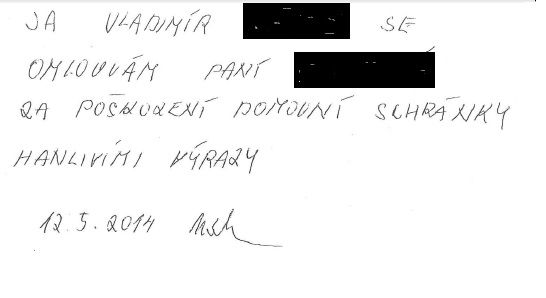 JA VLADIMÍR SE
OMLOUVÁM PANÍ
ZA POŠKOZENÍ DOMOVNÍ SCHRÁNKY
HANLIVÍMI VÝRAZY
12.5.2014